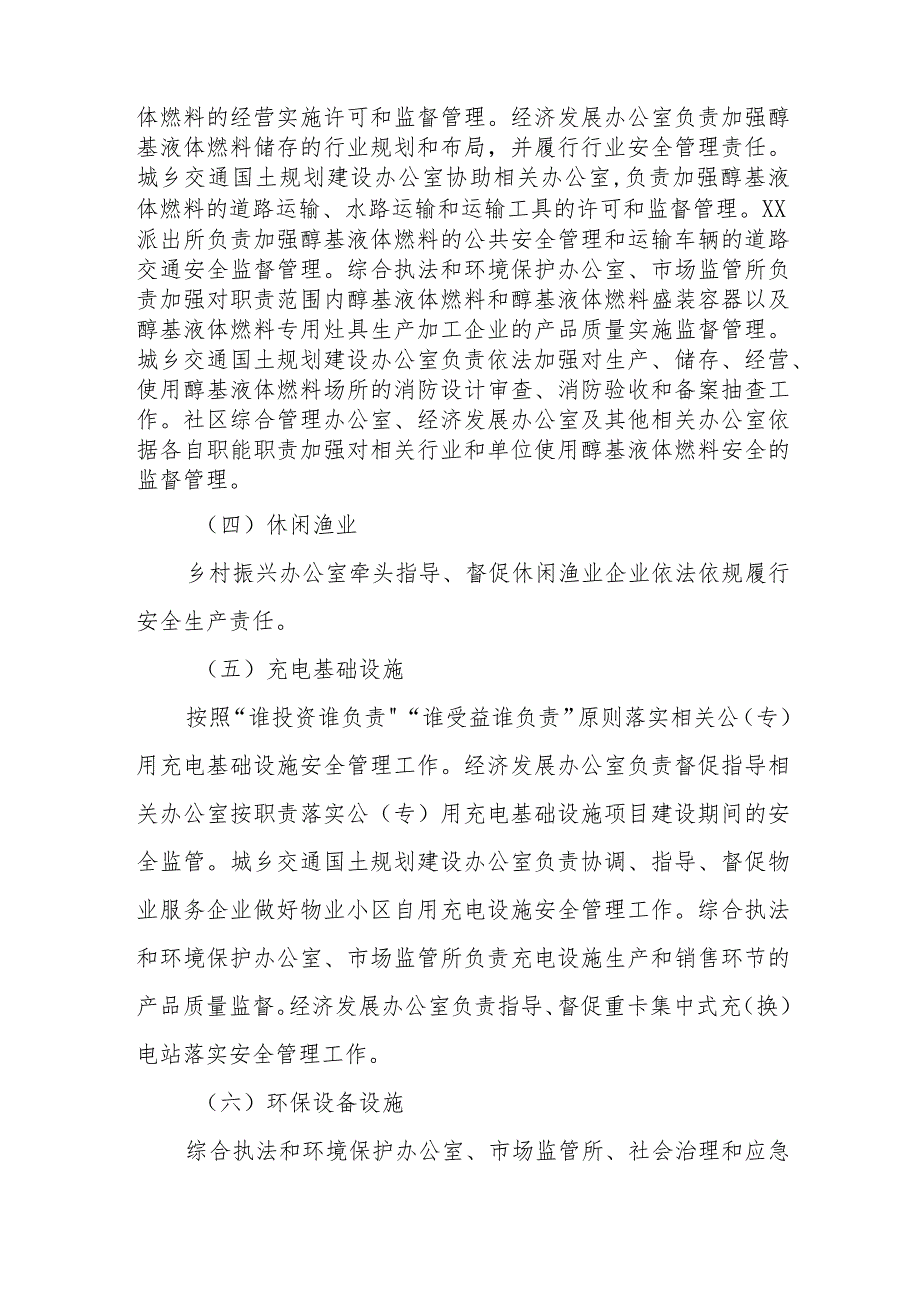 体燃料的经营实施许可和监督管理。经济发展办公室负责加强醇
基液体燃料储存的行业规划和布局，并履行行业安全管理责任。
城乡交通国土规划建设办公室协助相关办公室,负责加强醇基液
体燃料的道路运输、水路运输和运输工具的许可和监督管理。XX
派出所负责加强醇基液体燃料的公共安全管理和运输车辆的道路
交通安全监督管理。综合执法和环境保护办公室、市场监管所负
责加强对职责范围内醇基液体燃料和醇基液体燃料盛装容器以及
醇基液体燃料专用灶具生产加工企业的产品质量实施监督管理。
城乡交通国土规划建设办公室负责依法加强对生产、储存、经营、
使用醇基液体燃料场所的消防设计审查、消防验收和备案抽查工
作。社区综合管理办公室、经济发展办公室及其他相关办公室依
据各自职能职责加强对相关行业和单位使用醇基液体燃料安全的
监督管理。
（四）休闲渔业
乡村振兴办公室牵头指导、督促休闲渔业企业依法依规履行
安全生产责任。
（五）充电基础设施
按照“谁投资谁负责"“谁受益谁负责”原则落实相关公（专）
用充电基础设施安全管理工作。经济发展办公室负责督促指导相
关办公室按职责落实公（专）用充电基础设施项目建设期间的安
全监管。城乡交通国土规划建设办公室负责协调、指导、督促物
业服务企业做好物业小区自用充电设施安全管理工作。综合执法
和环境保护办公室、市场监管所负责充电设施生产和销售环节的
产品质量监督。经济发展办公室负责指导、督促重卡集中式充（换）
电站落实安全管理工作。
（六）环保设备设施
综合执法和环境保护办公室、市场监管所、社会治理和应急